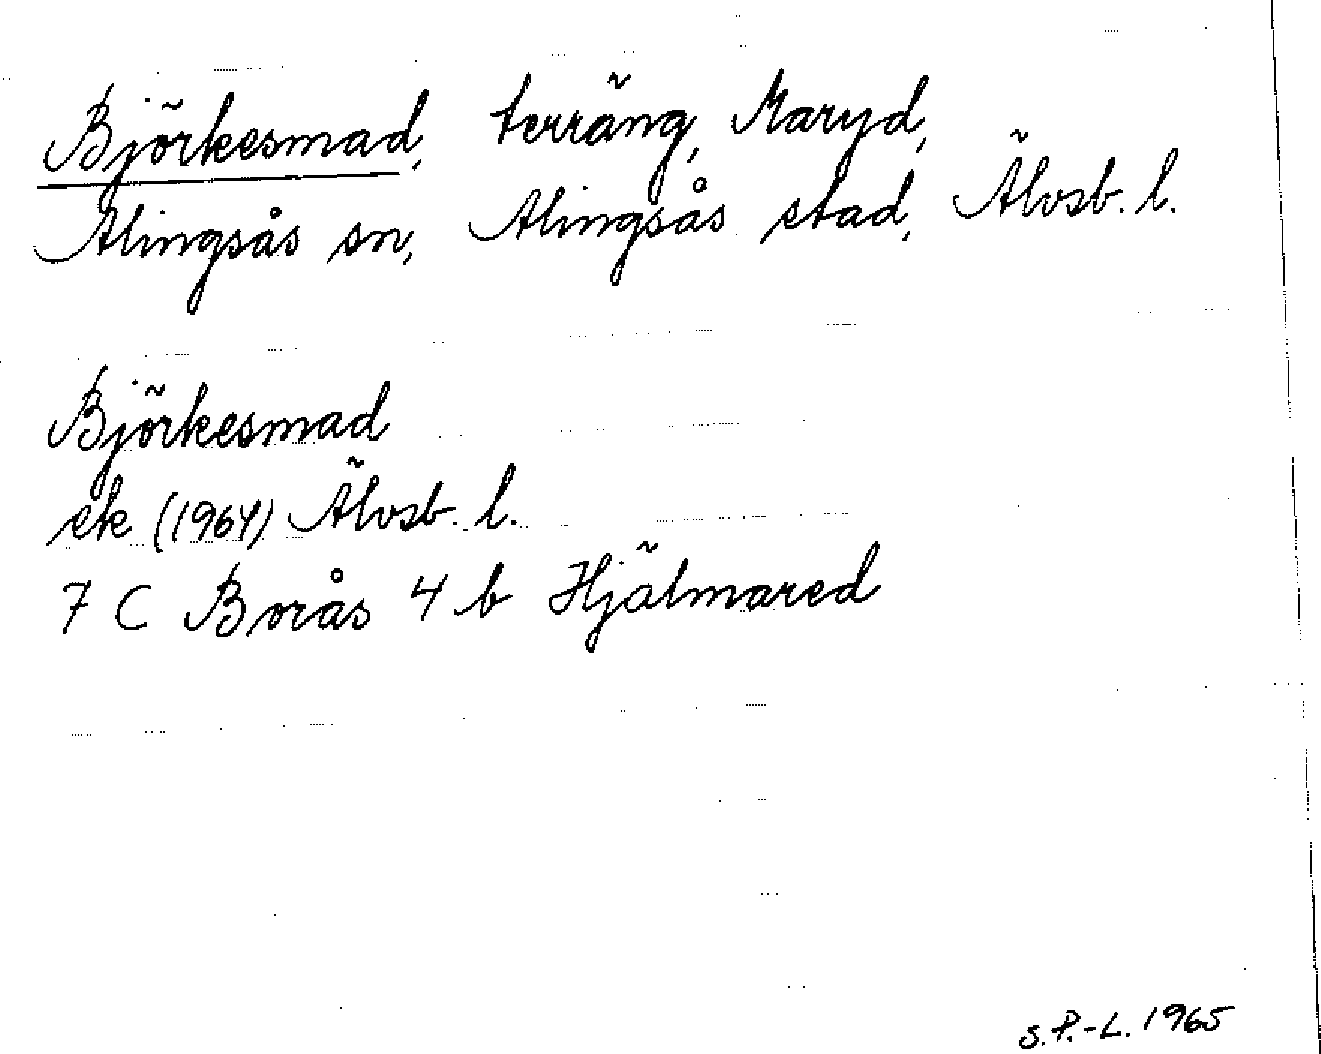 Björkesmad, terräng, Maryd,
Alingsås sn, Alingsås stad, Älvsb. l.
Björkesmad
ek (1964) Älvsb. l.
7 C Borås 4 b Hjälmared
S. P.-L. 1965